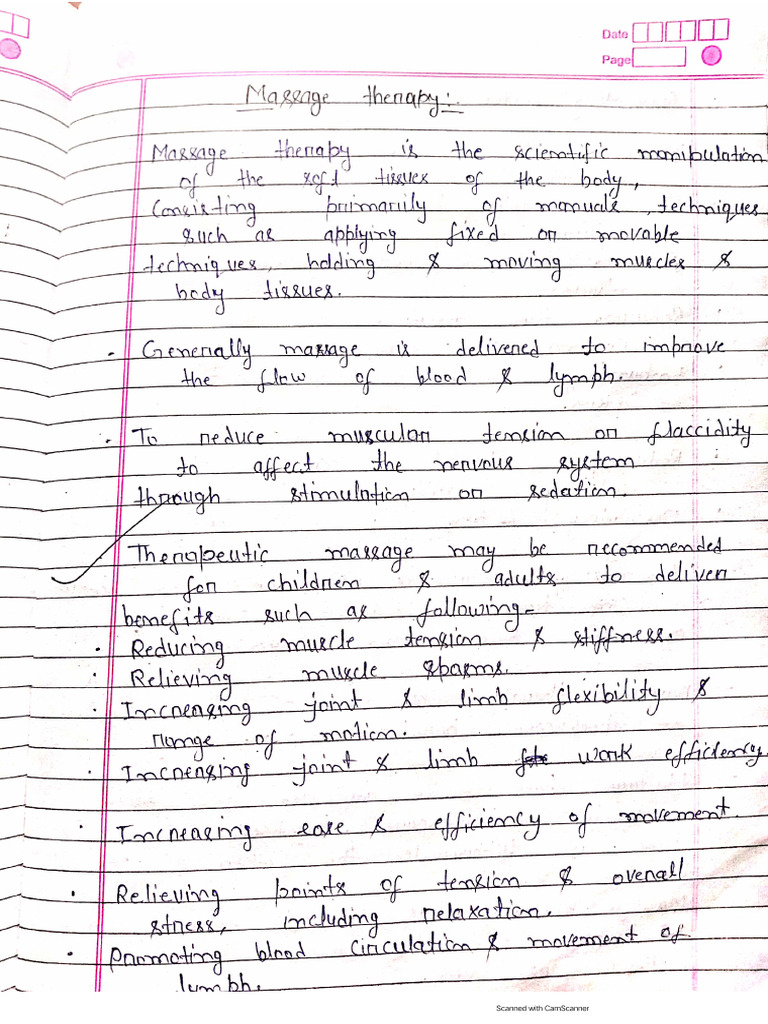 Date
Page
Massage therapy:
Massage therapy is the scientific manipulation
of the soft tissues of the body,
Consisting primarily of manuals techniques
such as applying fixed or movable
techniques, holding & moving muscles &
body tissues.
• Generally massage is delivered to improve
the flow of blood & lymph.
• To reduce muscular tension or flaccidity
to affect the nervous system
through stimulation or sedation.
Therapeutic massage may be recommended
for children & adults to deliver
benefits such as following-
• Reducing muscle tension & stiffness.
• Relieving muscle spasms.
• Increasing joint & limb flexibility &
range of motion.
• Increasing joint & limb work efficiency
• Increasing ease & efficiency of movement.
• Relieving points of tension & overall
stress, including relaxation.
• Promoting blood circulation & movement of
lymph.
Scanned with CamScanner